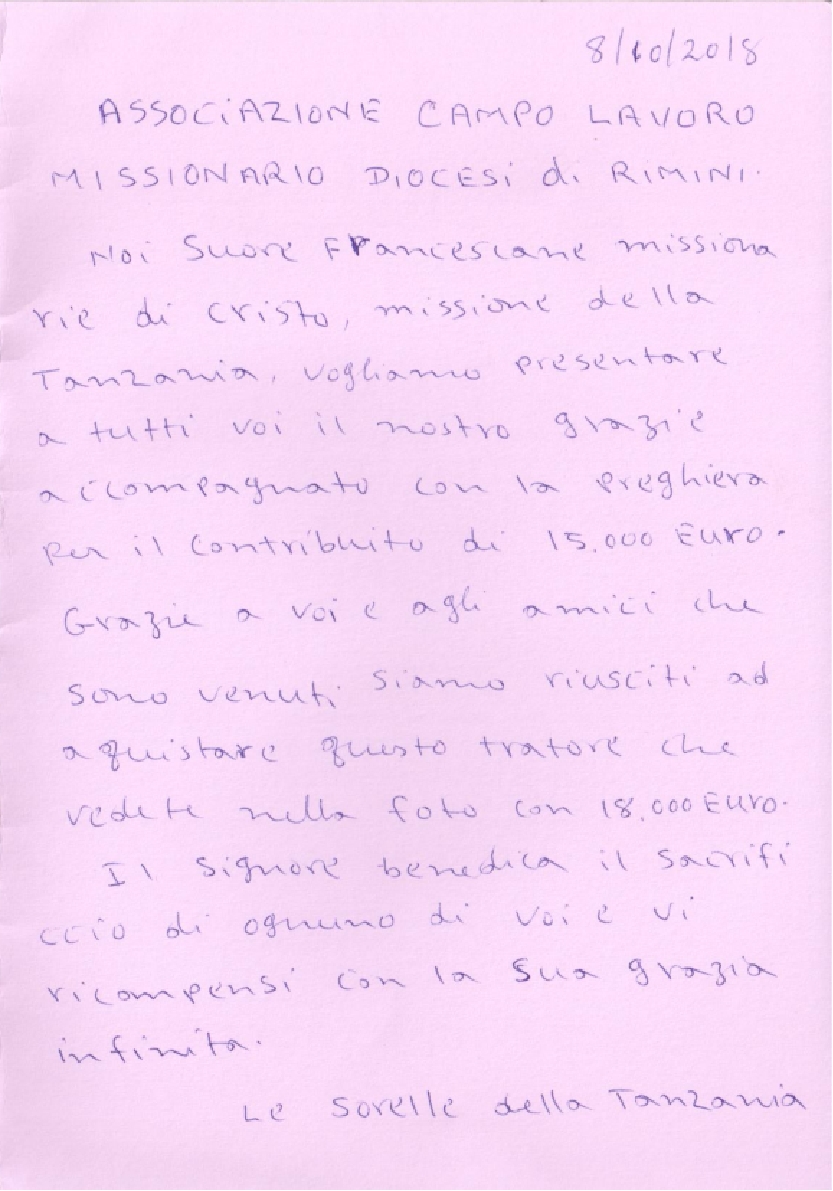 8/10/2018
ASSOCIAZIONE CAMPO LAVORO
MISSIONARIO DIOCESI di RIMINI.
Noi Suore Francescane missiona
rie di Cristo, missione della
Tanzania, vogliamo presentare
a tutti voi il nostro grazie
accompagnato con la preghiera
per il contribuito di 15.000 Euro.
Grazie a voi e agli amici che
sono venuti siamo riusciti ad
aquistare questo tratore che
vedete nella foto con 18.000 Euro.
Il Signore benedica il sacrifi
ccio di ognuno di voi e vi
ricompensi con la sua grazia
infinita.
Le Sorelle della Tanzania